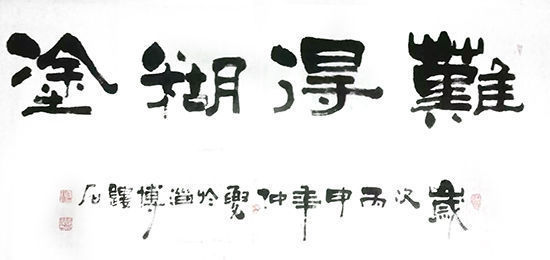 難得糊塗
歲次丙申年仲夏於淄博石